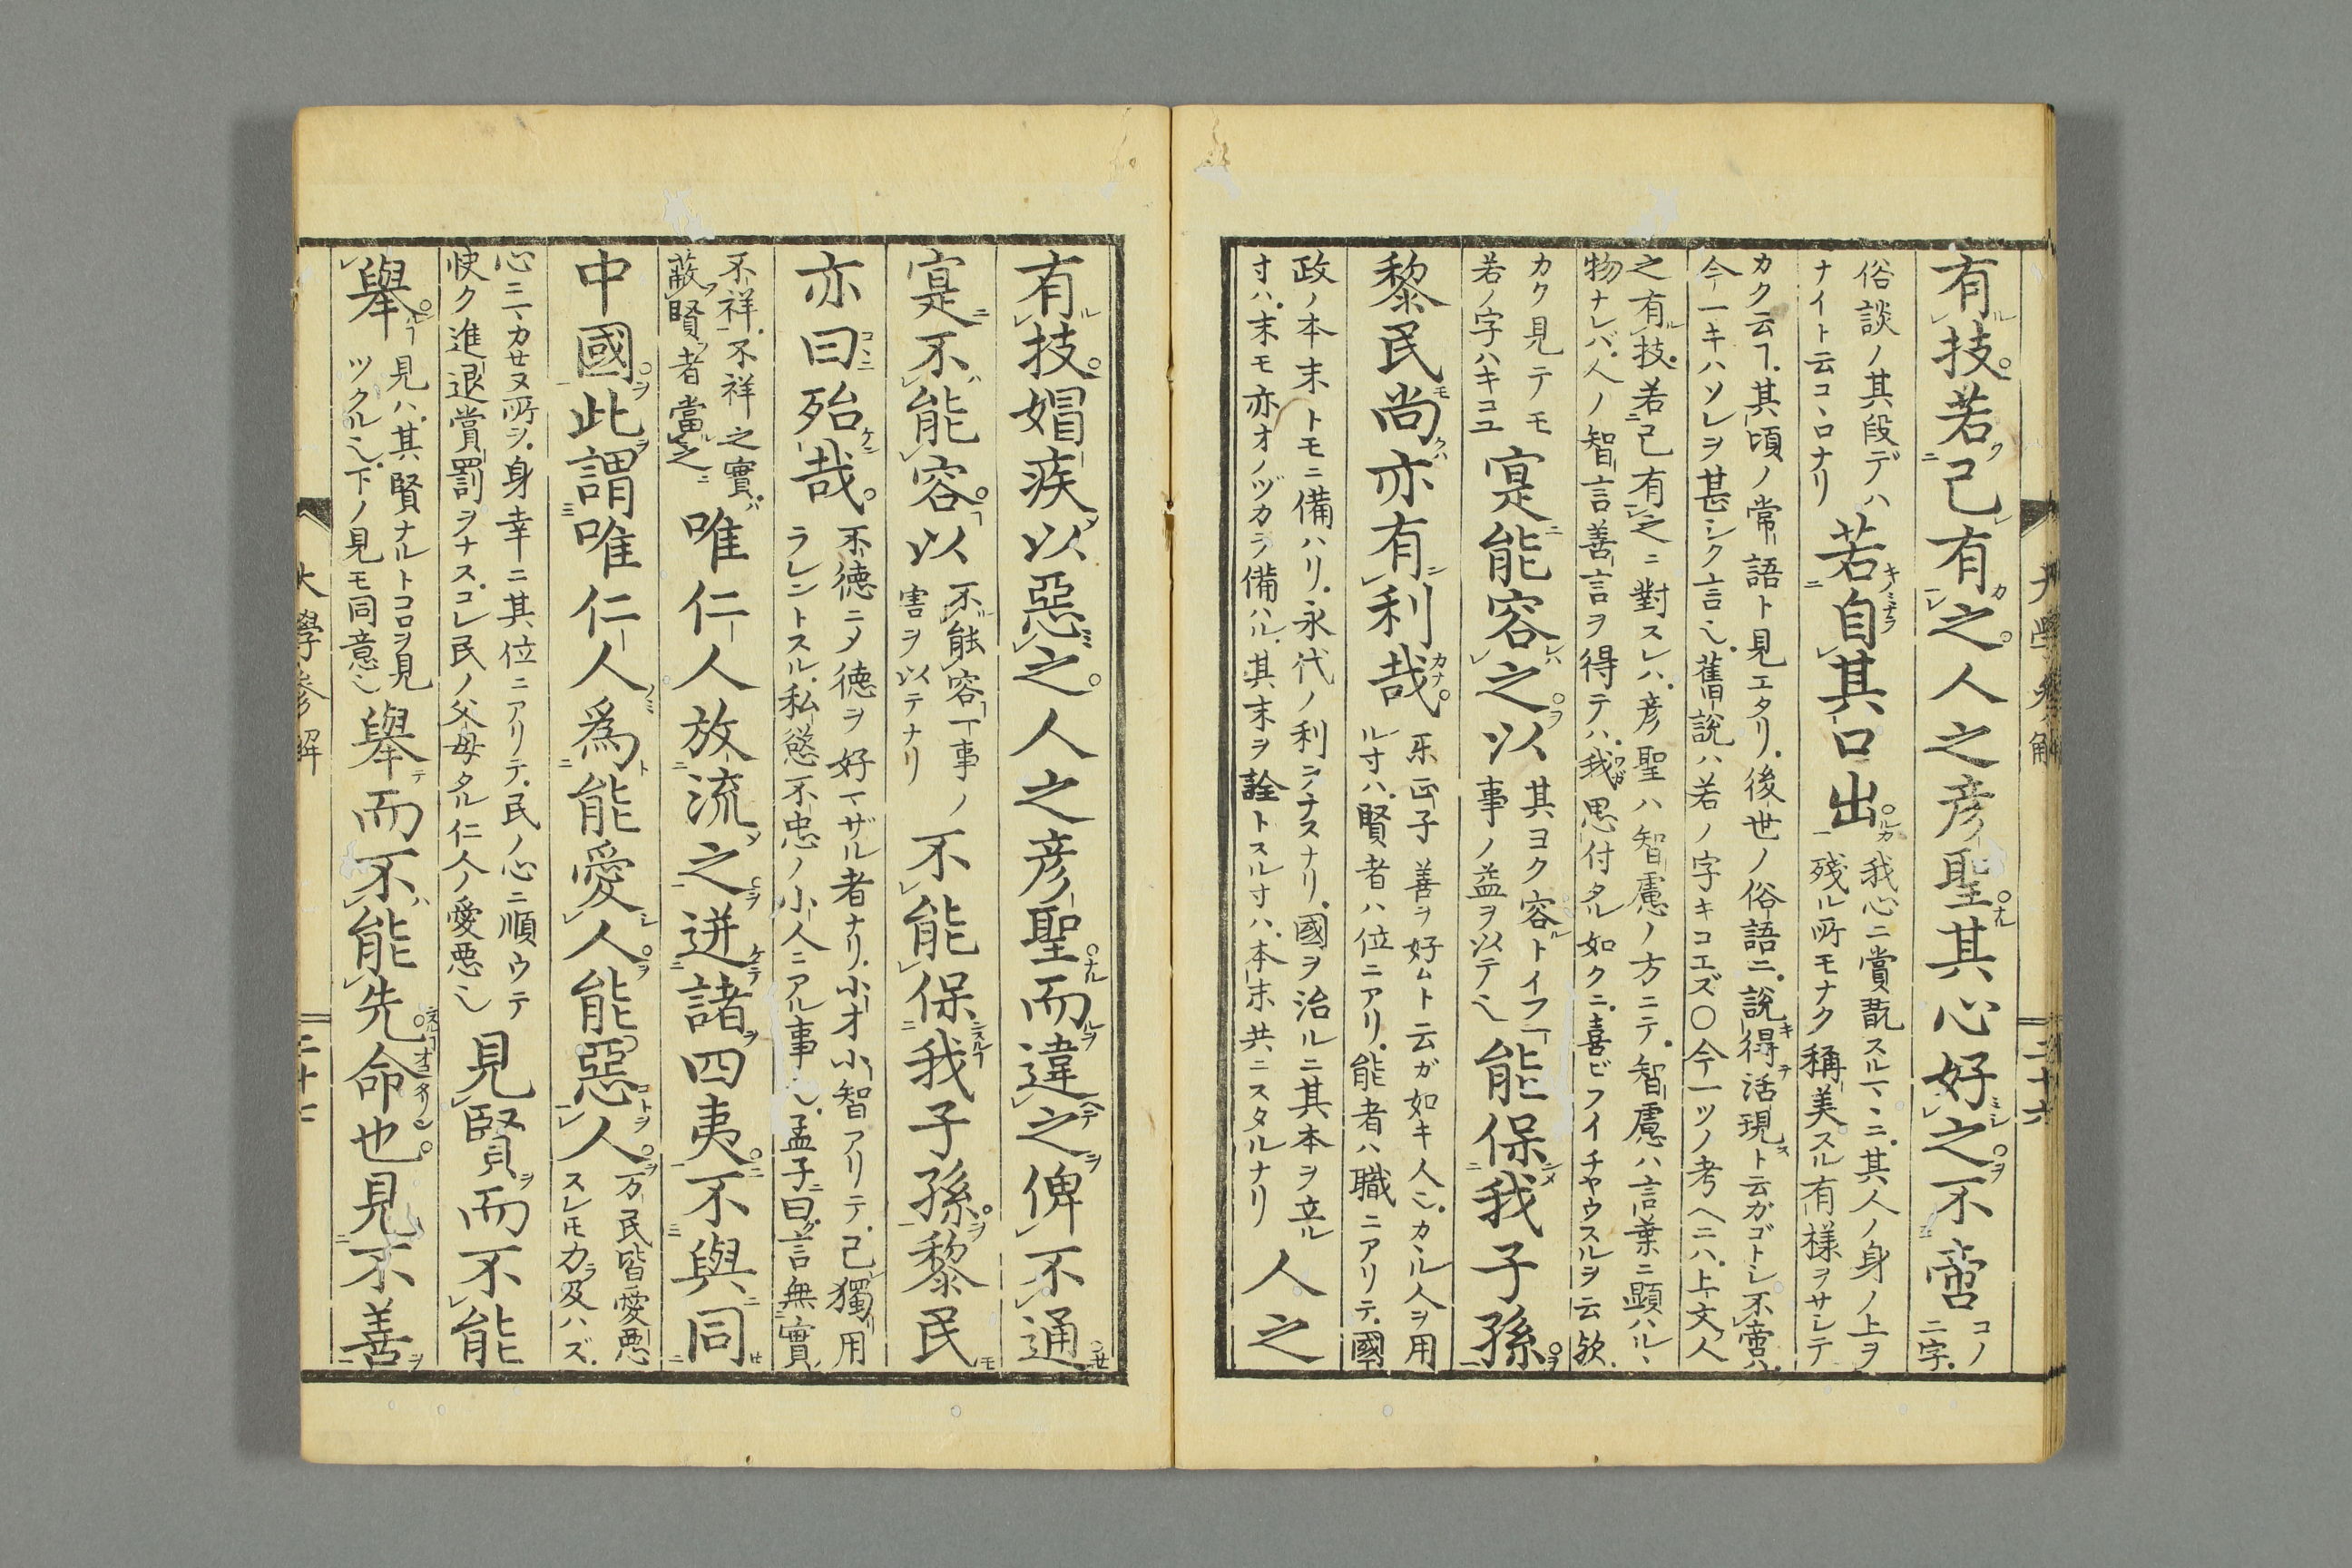 有技若己有之人之彦聖其心好之不啻コノ二字
俗談ノ其段デハ
ナイト云コヽロナリ
若自其口出
我心ニ賞翫スルマヽニ其人ノ身ノ上ヲ
残ル所モナク稱美スル有様ヲサシテ
カク云ヿ其頃ノ常語ト見エタリ後世ノ俗語ニ説得活現ト云ガゴトシ不啻ハ
今一キハソレヲ甚シク言也舊説ハ若ノ字キコエズ〇今一ツノ考ヘニハ上文人
之有技若己有之ニ對スレハ彦聖ハ智慮ノ方ニテ智慮ハ言葉ニ顕ハルヽ
物ナレバ人ノ智言善言ヲ得テハ我思付タル如クニ喜ビフイチヤウスルヲ云欤
カク見テモ
若ノ字ハキコユ
寔能容之以
其ヨク容トイフ
事ノ益ヲ以テ也
能保我子孫
黎民尚亦有利哉
樂正子善ヲ好ムト云ガ如キ人也カヽル人ヲ用
ル寸ハ賢者ハ位ニアリ能者ハ職ニアリテ國
政ノ本末トモニ備ハリ永代ノ利ヲナスナリ國ヲ治ルニ其本ヲ立ル
寸ハ末モ亦オノヅカラ備ハル其末ヲ詮トスル寸ハ本末共ニスタルナリ
人之
大學参解
二十六
有技媢疾以惡之人之彦聖而違之俾不通
寔不能容以
不能容ヿ事ノ
害ヲ以テナリ
不能保我子孫黎民
亦曰殆哉
不徳ニメ徳ヲ好マザル者ナリ小才小智アリテ己獨用
ラレントスル私慾不忠ノ小人ニアル事也孟子曰言無實
不祥不祥之實
蔽賢者當之
唯仁人放流之迸諸四夷不與同
中國此謂唯仁人爲能愛人能惡人
万民皆愛悪
スレモ力及ハズ
心ニマカセヌ所ヲ身幸ニ其位ニアリテ民ノ心ニ順ウテ
快ク進退賞罰ヲナスコレ民ノ父母タル仁人ノ愛悪也
見賢而不能
舉
見ハ其賢ナルトコロヲ見
ツクル也下ノ見モ同意也
舉而不能先命也見不善
大學參解
二十七